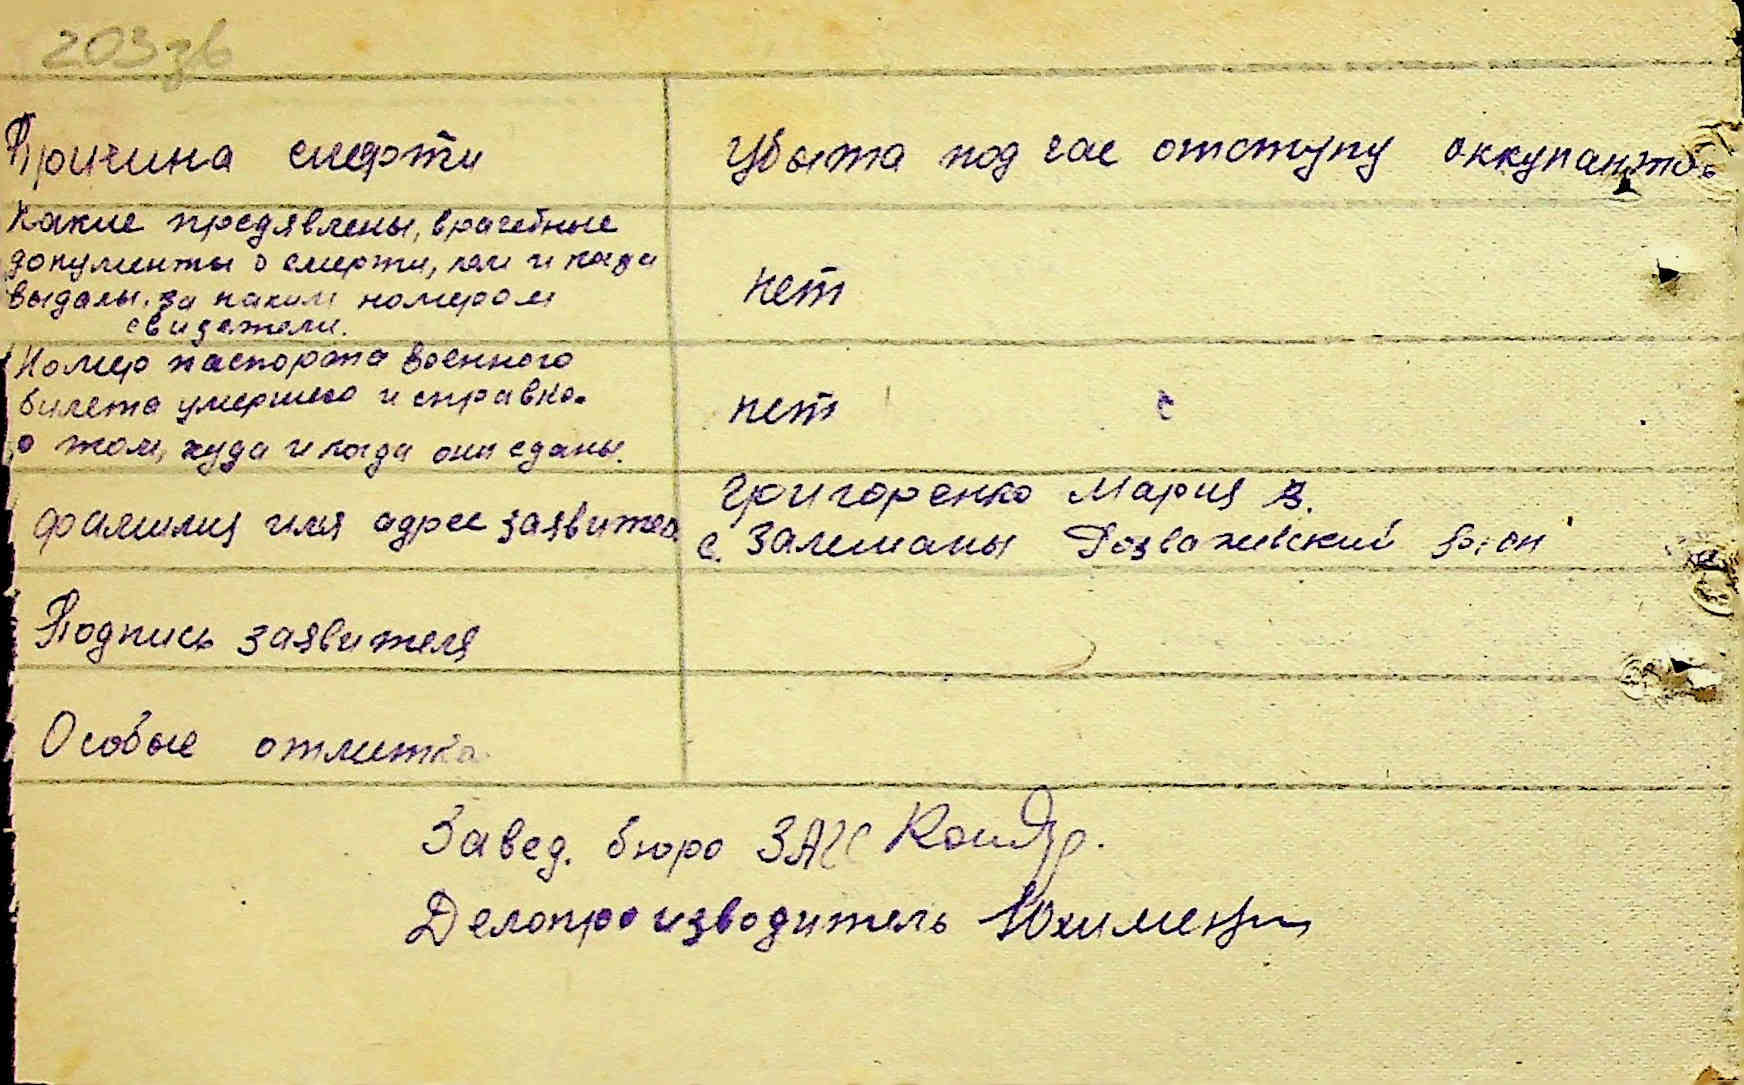 203 зв
Причина смерти
Убыта под час отступу оккупантов
Какие предявлены, врачебные
документы о смерти, кем и когда
выданы. за каким номером
свидетели.
нет
Номер паспорта военного
билета умершего и справка.
о том, куда и когда они сданы.
нет
с
фамилия имя адрес заявителя
Григоренко Мария В.
с. Залишаны Розважевский район
Подпись заявителя
Особые отметка
Завед. бюро ЗАГС
Делопроизводитель